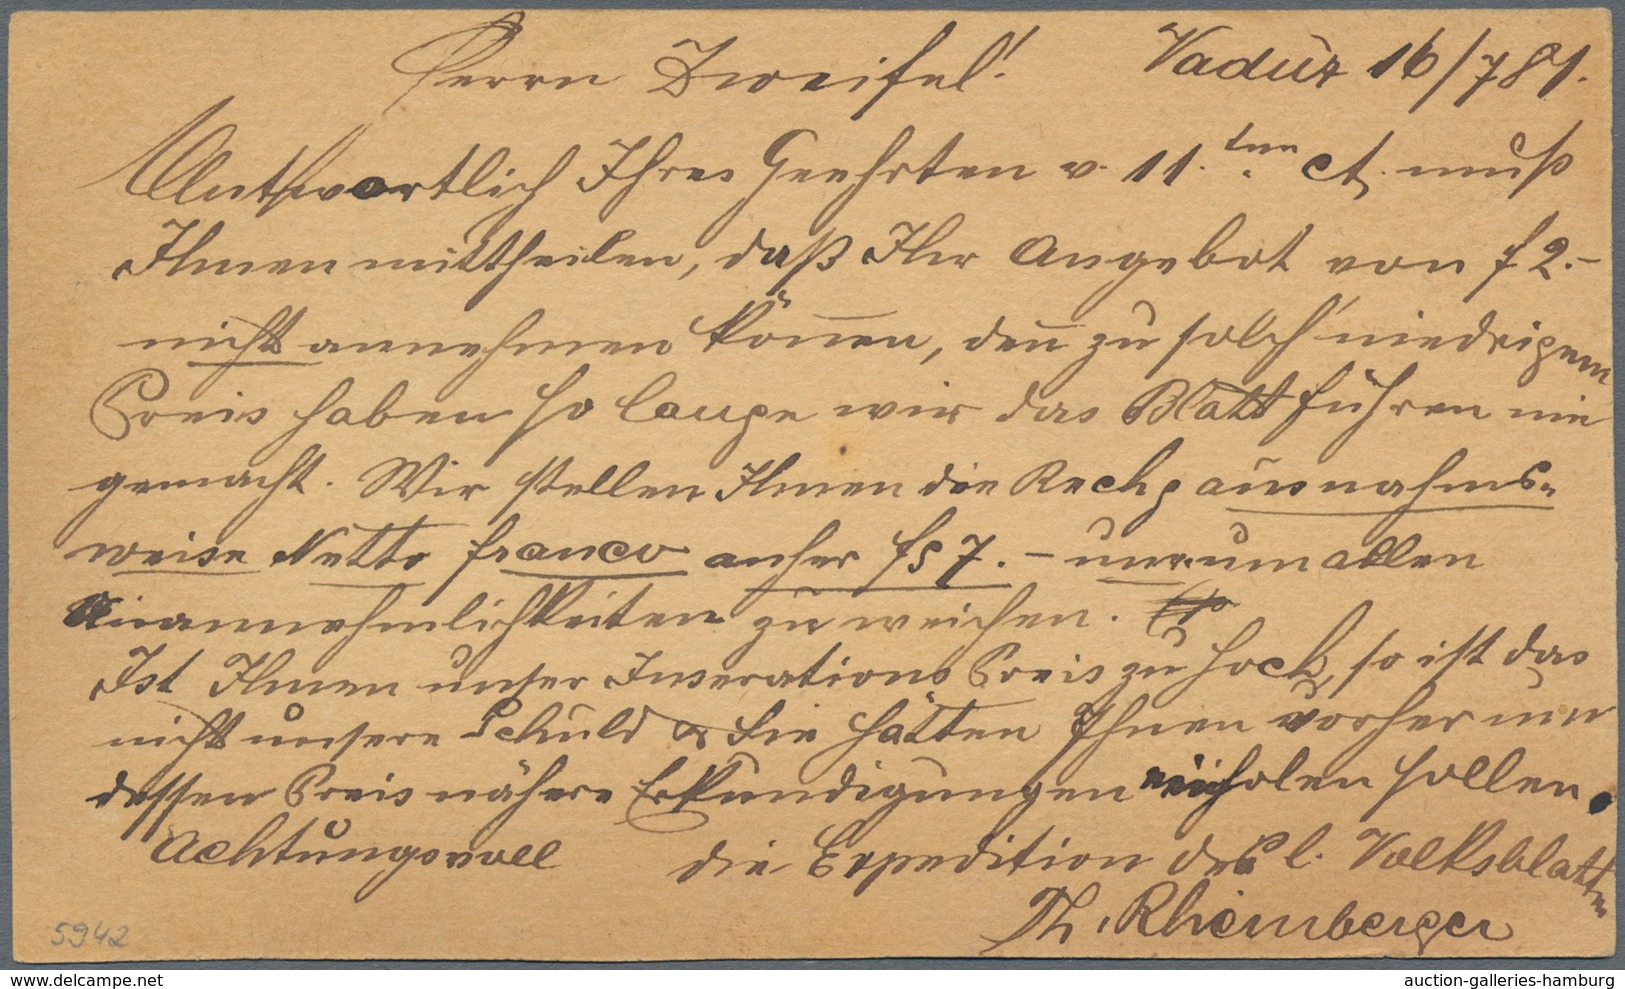 Herrn Zweifel! Vaduz 16/7 81.
Antwortlich Ihres Geehrten v. 11.ten ct. muß
Ihnen mittheilen, daß Ihr Angebot von f 2.-
nicht annehmen können, denn zu solch' niedrigem
Preis haben so lange wir das Blatt führen nie
gemacht. Wir stellen Ihnen die Rechg ausnahms-
weise Netto franco anher f 7.- um allen
Unannehmlichkeiten zu weichen.
Ist Ihnen unser Inserations Preis zu hoch, so ist das
nicht unsere Schuld & Sie hätten Ihnen vorher um
dessen Preis nähere Erkundigungen einholen sollen.
Achtungsvoll die Expedition des l. Volksblattes
Th. Rheinberger
5942
www.philasearch.com auction-galleries-hamburg